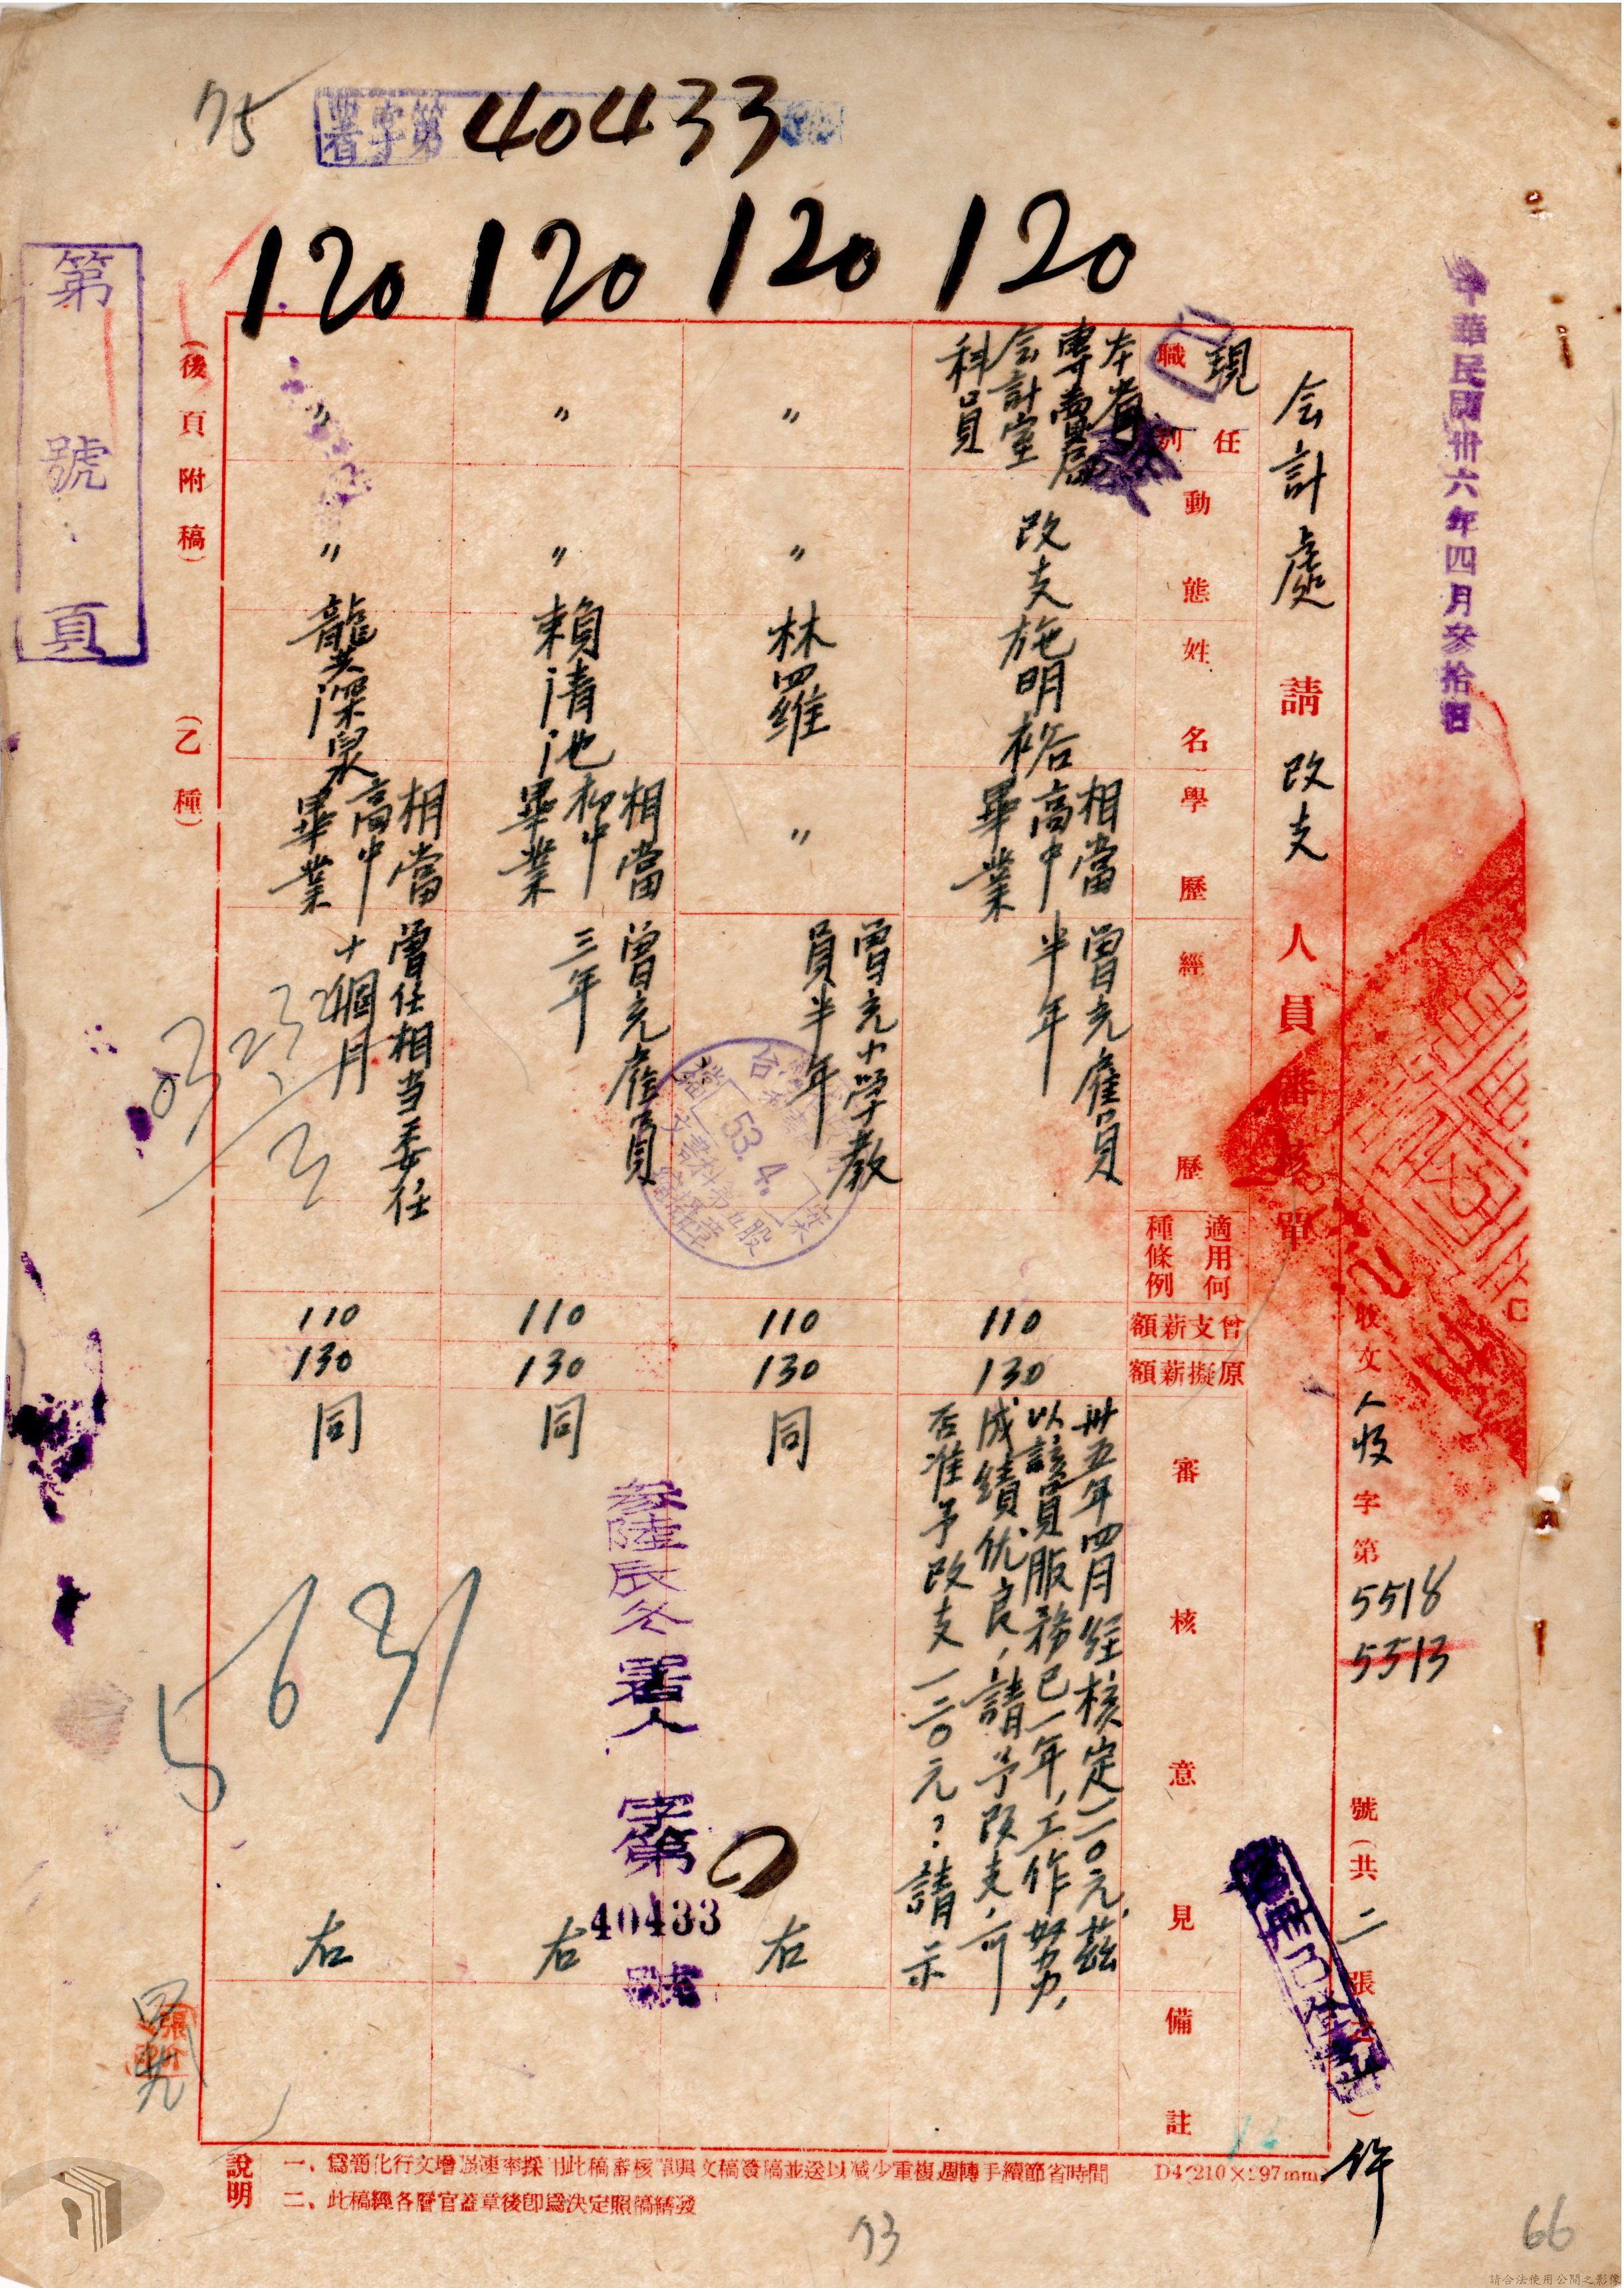 75
署字第 40433 號
120 120 120 120
中華民國卅六年四月參拾日
收文人收字第5518 5513號(共二張之)件
会計處請改支人員審核單
現任職別
動態
姓名
學歷
經歷
適用何種條例
曾支薪額
原擬薪額
審核意見
備註
本省專賣局会計室科員
改支
施明裕
相當高中畢業
曾充雇員半年
110
130
卅五年四月經核定一一〇元,茲
以該員服務已一年,工作努力,
成績优良,請予改支,可
否准予改支一二〇元?請示
〃
〃
林四維
〃
曾充小學教員半年
110
130
同右
〃
〃
賴清池
相當初中畢業
曾充雇員三年
110
130
同右
〃
〃
龔深泉
相當高中畢業
曾任相当委任十個月
110
130
同右
參陸辰冬署人字第40433號
53.4.
(後頁附稿)
(乙種)
第 號 頁
說明
一、爲簡化行文增加速率採用此稿審核單與文稿發稿並送以減少重複週轉手續節省時間
D4(210×297mm)
二、此稿經各層官蓋章後卽爲決定照稿繕發
73
66
請合法使用公開之影像